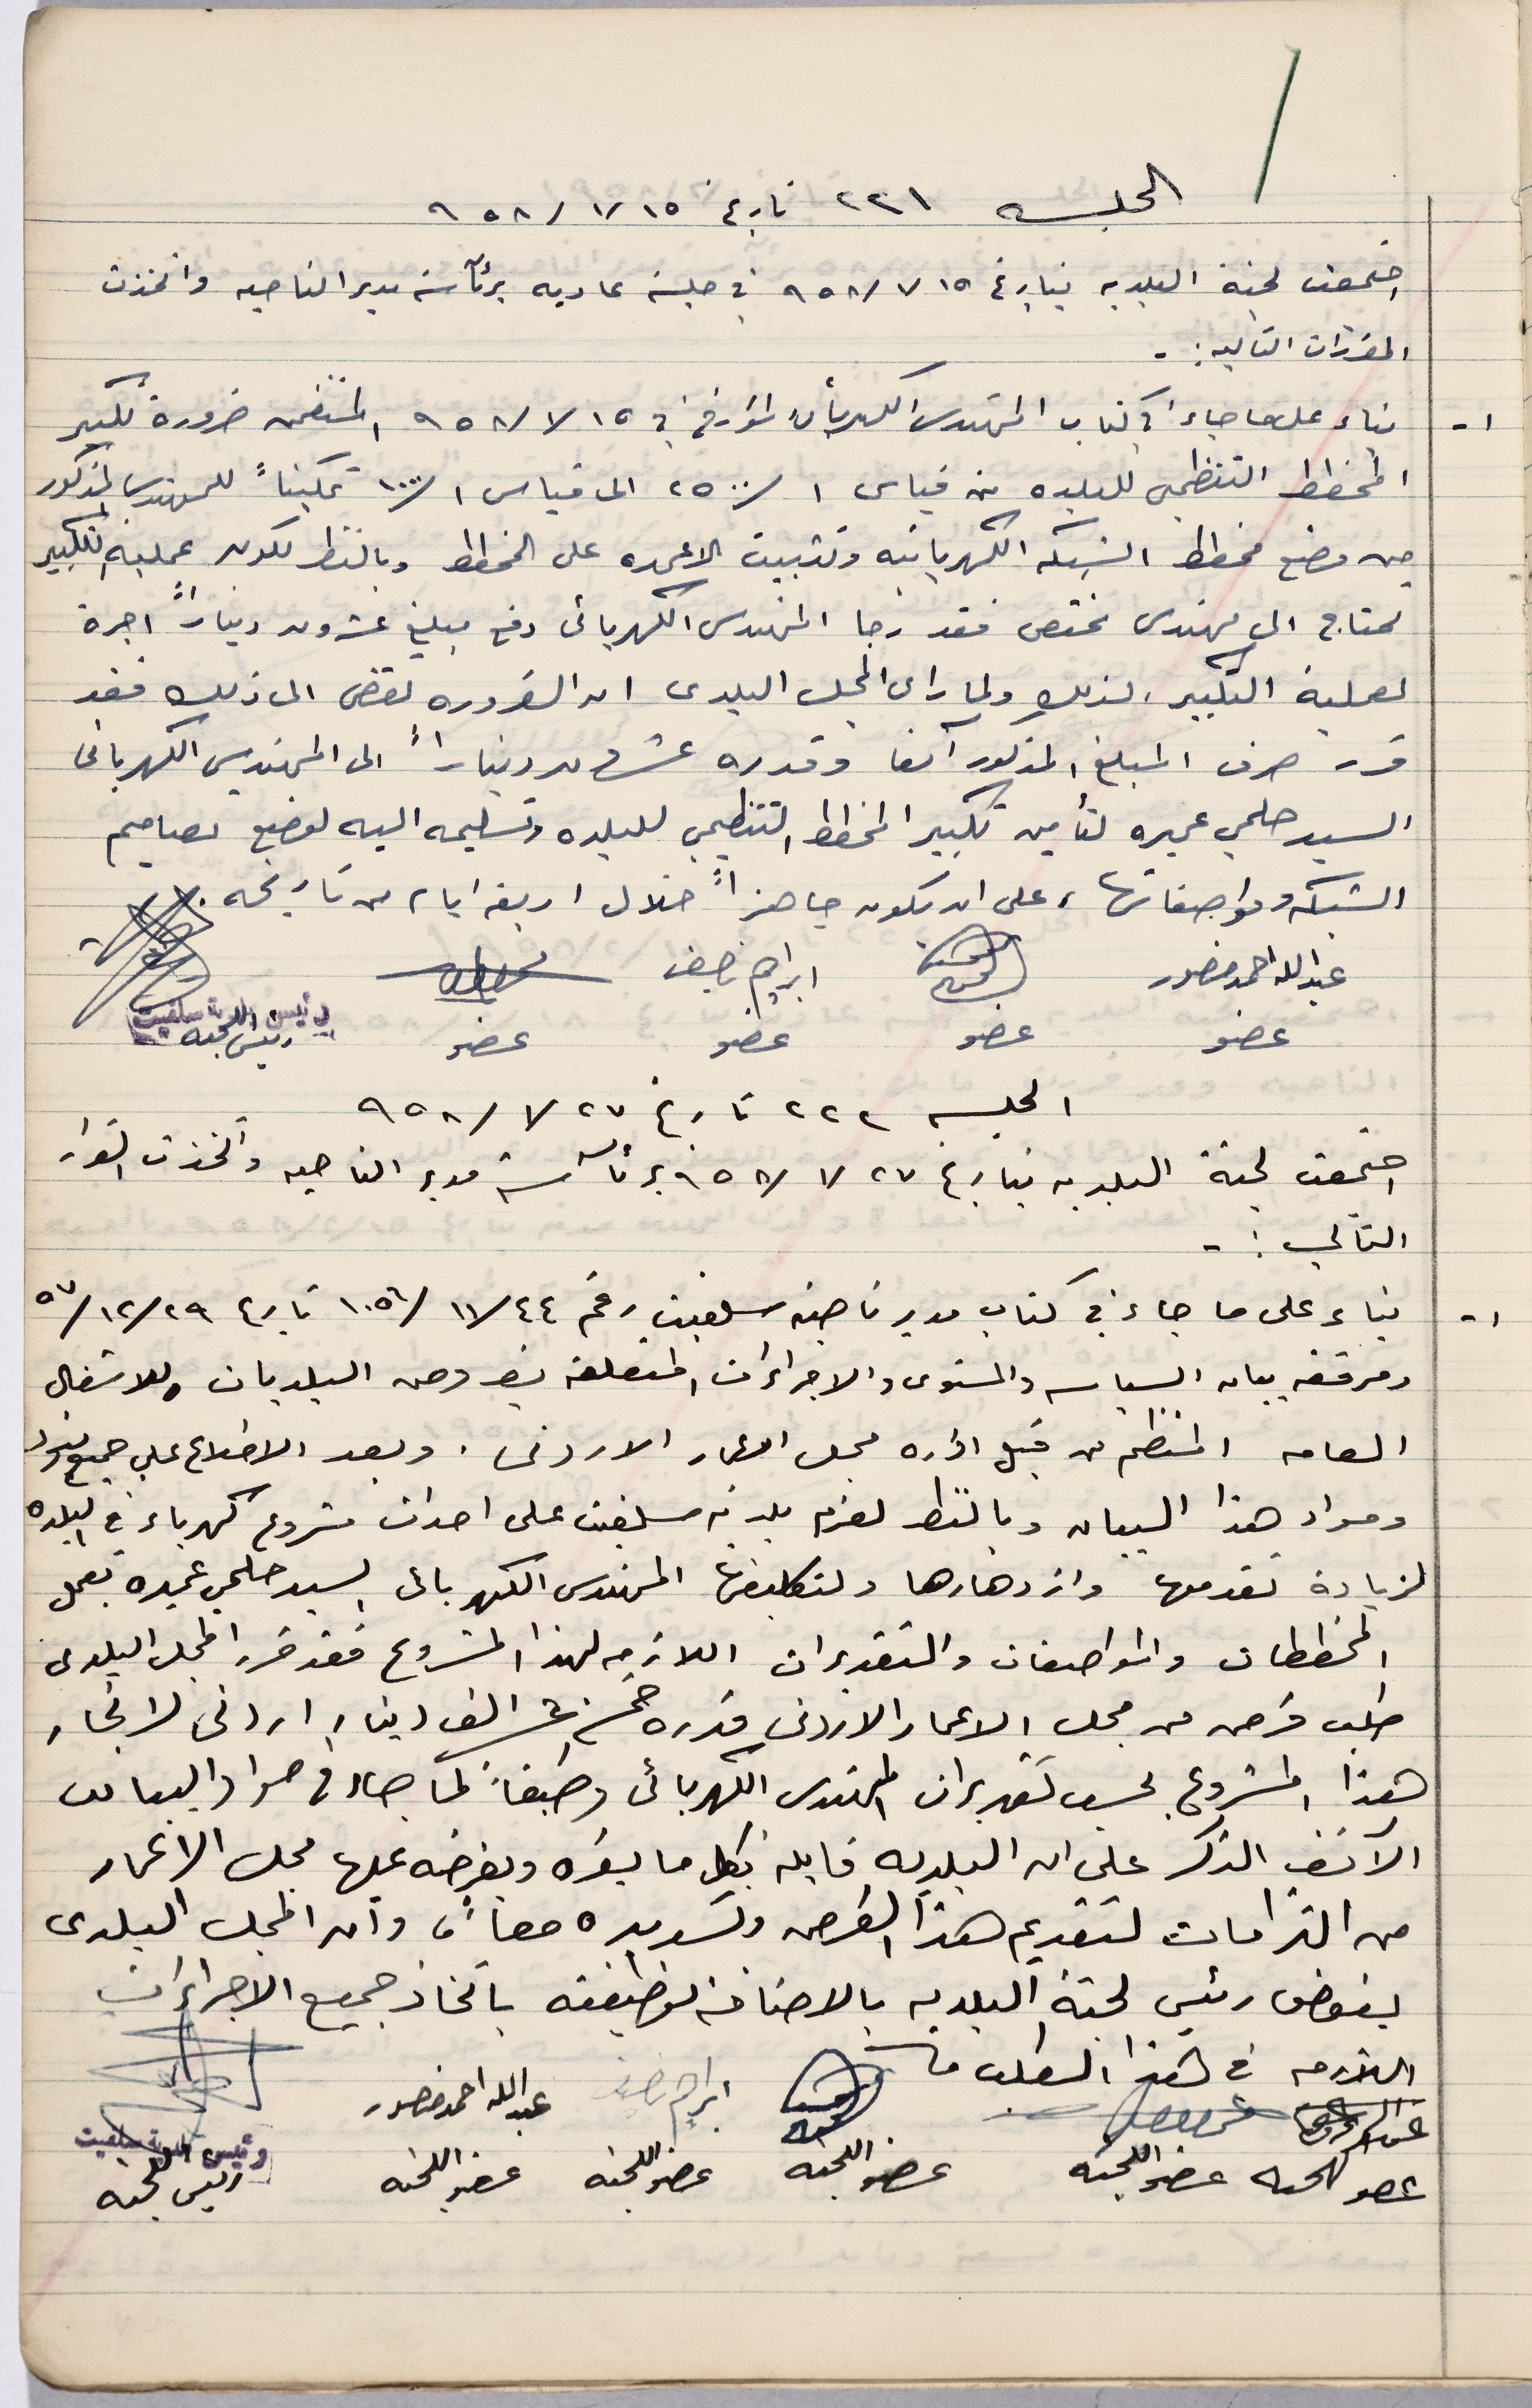 الجلسه ٢٢١ تاريخ ١٥ /١/ ٩٥٨
اجتمعت لجنة البلديه بتاريخ ١٥ /١/ ٩٥٨ في جلسة عاديه برئآسة مدير الناحيه واتخذت
المقررات التاليه : -
١- بناء على ما جاء في كتاب المهندس الكهربائي المؤرخ في ١٥ /١/ ٩٥٨ المتضمن ضرورة تكبير
المخطط التنظيمي للبلده من قياس ١ /٢٥٠٠ الى قياس ١ /١٠٠٠ تمكيناً للمهندس المذكور
من وضع مخطط الشبكه الكهربائيه وتثبيت الاعمده على المخطط وبالنظر لكون عملية التكبير
تحتاج الى مهندس مختص فقد رجا المهندس الكهربائي دفع مبلغ عشرون ديناراً اجرة
لعملية التكبير . لذلك ولما راى المجلس البلدى ان الضروره تقضى الى ذلك فقد
قرر صرف المبلغ المذكور آنفا وقدره عشرون ديناراً الى المهندس الكهربائى
السيد حلمي عميره لتأمين تكبير المخطط التنظيمي للبلده وتسليمه اليه لوضع تصاميم
الشبكه ومواصفاتها ، على ان تكون جاهزاً خلال اربعة ايام من تاريخه .
عبدالله احمد منصور ابراهيم ناصيف
عضو عضو عضو عضو رئيس اللجنه
رئيس بلدية سلفيت
الجلسه ٢٢٢ تاريخ ٢٧ /١/ ٩٥٨
اجتمعت لجنة البلديه بتاريخ ٢٧ /١/ ٩٥٨ برئآسة مدير الناحيه واتخذت القرار
التالي : -
١- بناء على ما جاء في كتاب مدير ناحية سلفيت رقم ٤٤ /١١/ ١٠٥٦ تاريخ ٢٩ /١٢/ ٥٧
ومرفقه بيان السياسه والمستوى والاجراءات المتعلقه بقروض البلديات وللاشغال
العامه المنظم من قبل اداره مجلس الاعمار الاردنى . وبعد الاطلاع على جميع بنود
ومواد هذا البيان وبالنظر لعزم بلدية سلفيت على احداث مشروع كهرباء في البلده
لزيادة تقدمها وازدهارها ولتكليفها المهندس الكهربائى السيد حلمي عميره بعمل
المخططات والمواصفات والتقديرات اللازمه لهذا المشروع فقد قرر المجلس البلدى
طلب قرض من مجلس الاعمار الاردنى قدره خمسة عشر الف دينار اردنى لانجاز
هذا المشروع بحسب تقديرات المهندس الكهربائى وطبقاً لما جاء في مواد البيان
الآنف الذكر على ان البلديه قابله بكل ما يقره ويفرضه عليها مجلس الاعمار
من التزامات لتقديم هذا القرض وتسديده معاً ، وان المجلس البلدى
يفوض رئيس لجنة البلديه بالاضافة لوظيفته باتخاذ جميع الاجراءات
اللازمه في هذا الطلب
ابراهيم ناصيف عبدالله احمد منصور
عضو اللجنه عضو اللجنه عضو اللجنه عضو اللجنه عضو اللجنه رئيس اللجنه
رئيس بلدية سلفيت